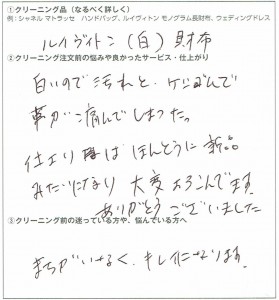 ①クリーニング品（なるべく詳しく）
例：シャネル マトラッセ ハンドバッグ、ルイヴィトン モノグラム長財布、ウェディングドレス
ルイヴィトン（白）財布
②クリーニング注文前の悩みや良かったサービス・仕上がり
白いので汚れと、
革が痛んでしまった。
仕上りはほんとうに新品
みたいになり大変よろこんでます。
ありがとうございました
③クリーニング前の迷っている方や、悩んでいる方へ
まちがいなく、キレイになります。